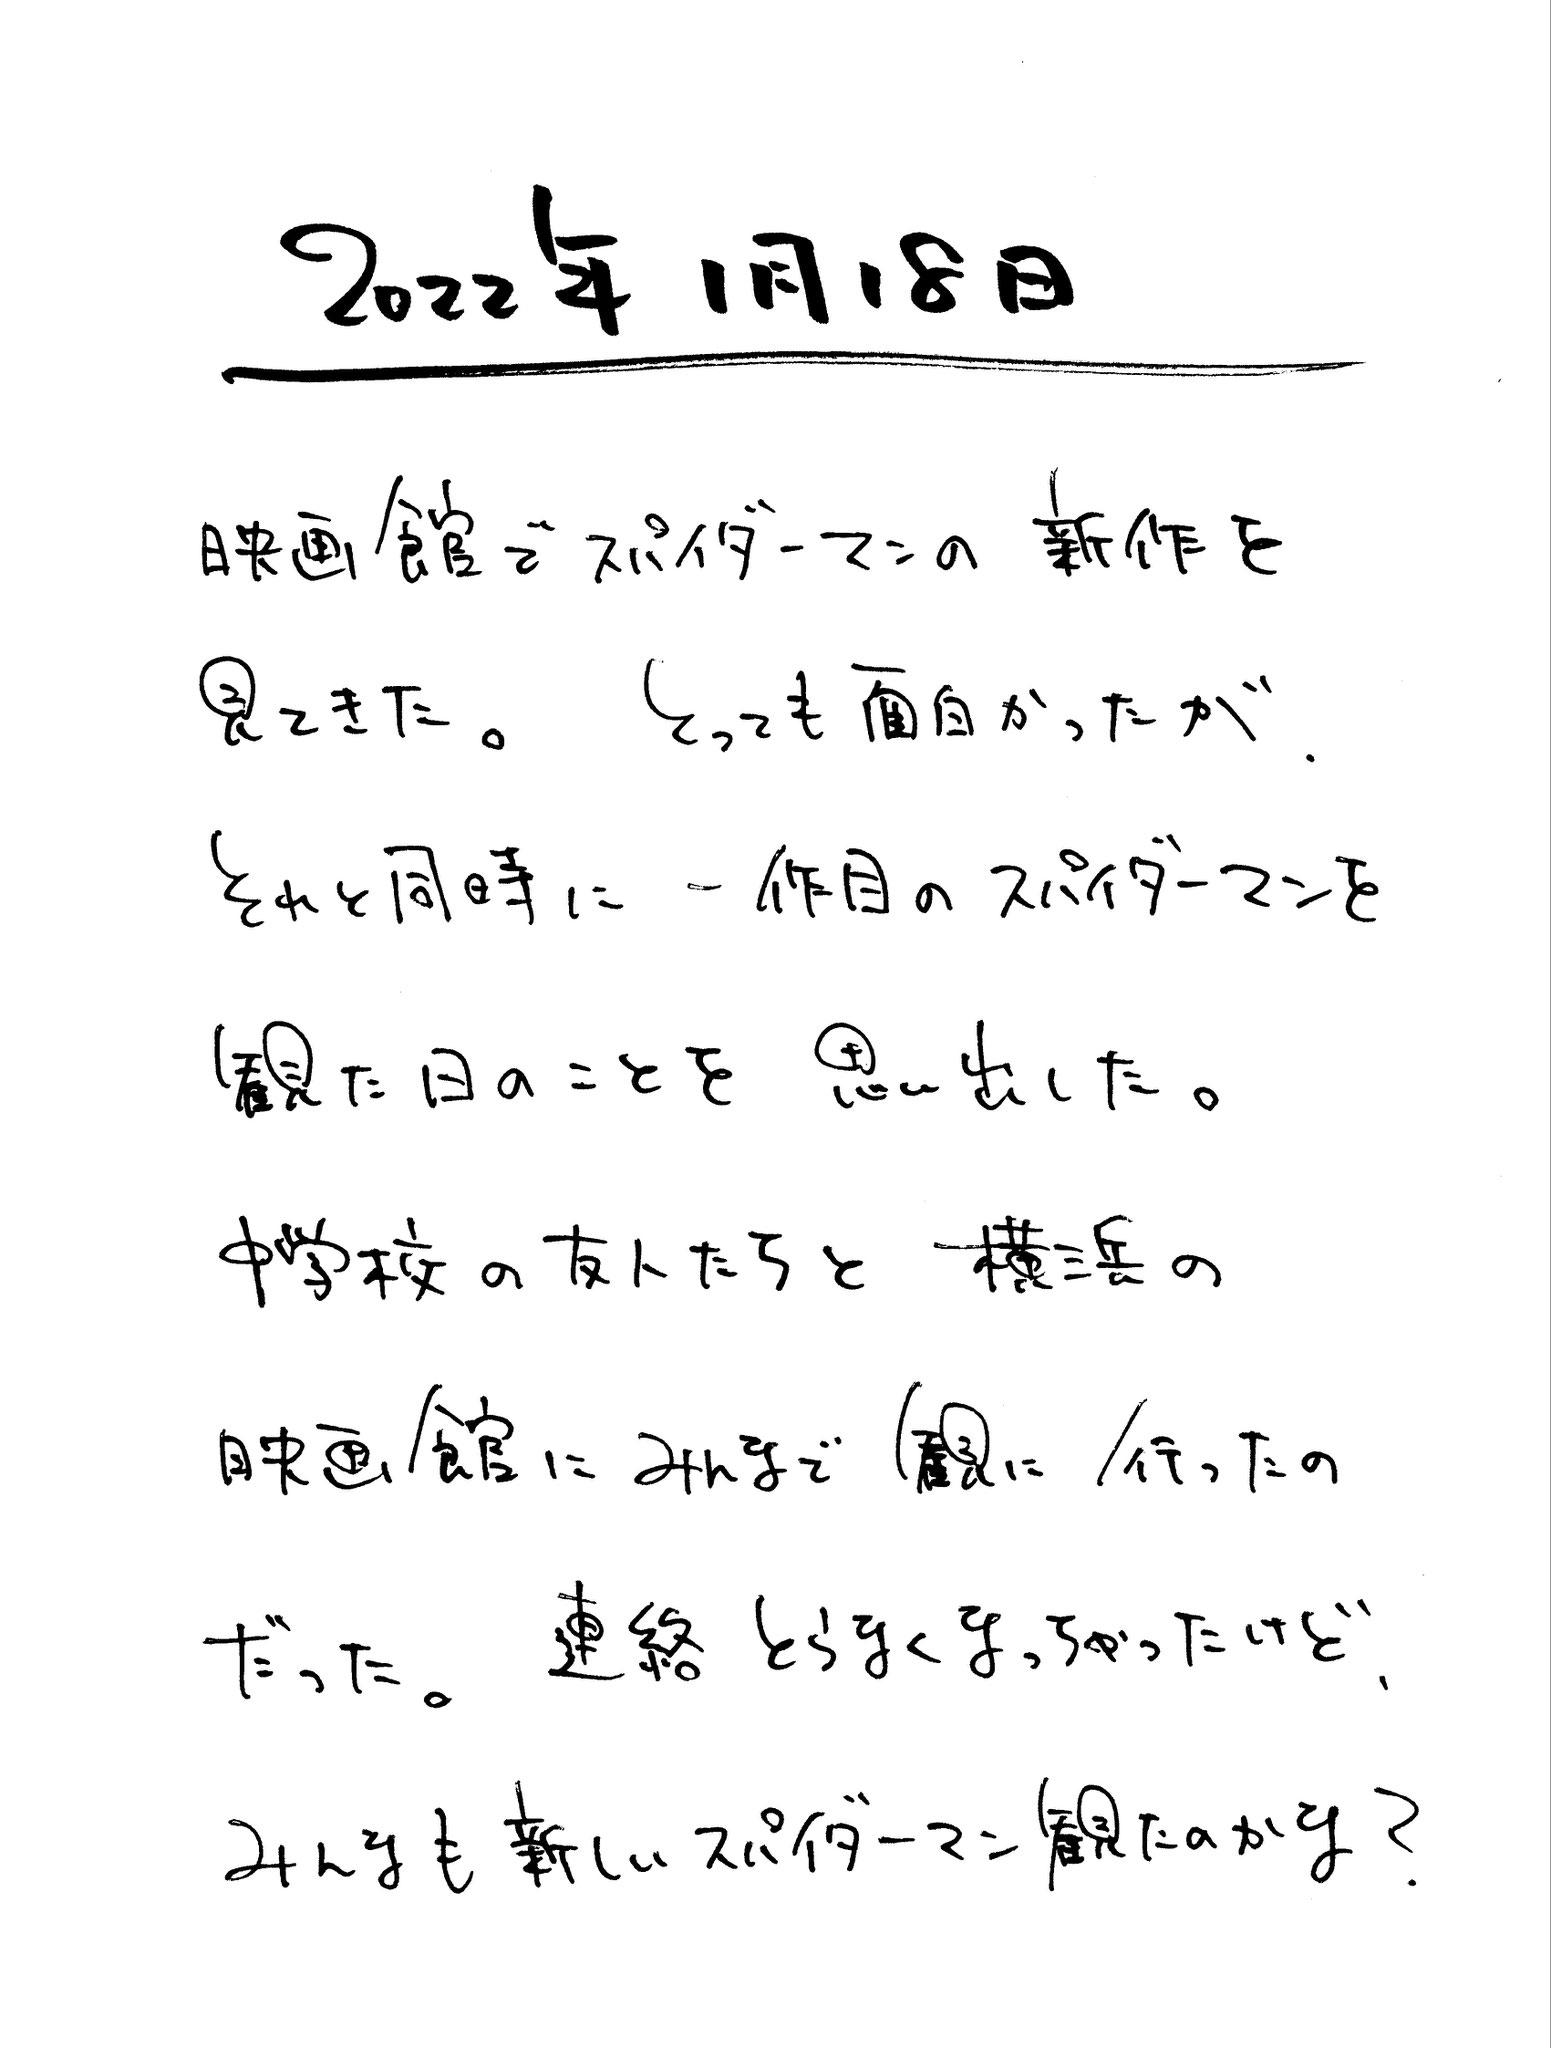 2022年1月18日
映画館でスパイダーマンの新作を
見てきた。とっても面白かったが、
それと同時に一作目のスパイダーマンを
観た日のことを思い出した。
中学校の友人たちと横浜の
映画館にみんなで観に行ったの
だった。連絡とらなくなっちゃったけど、
みんなも新しいスパイダーマン観たのかな?